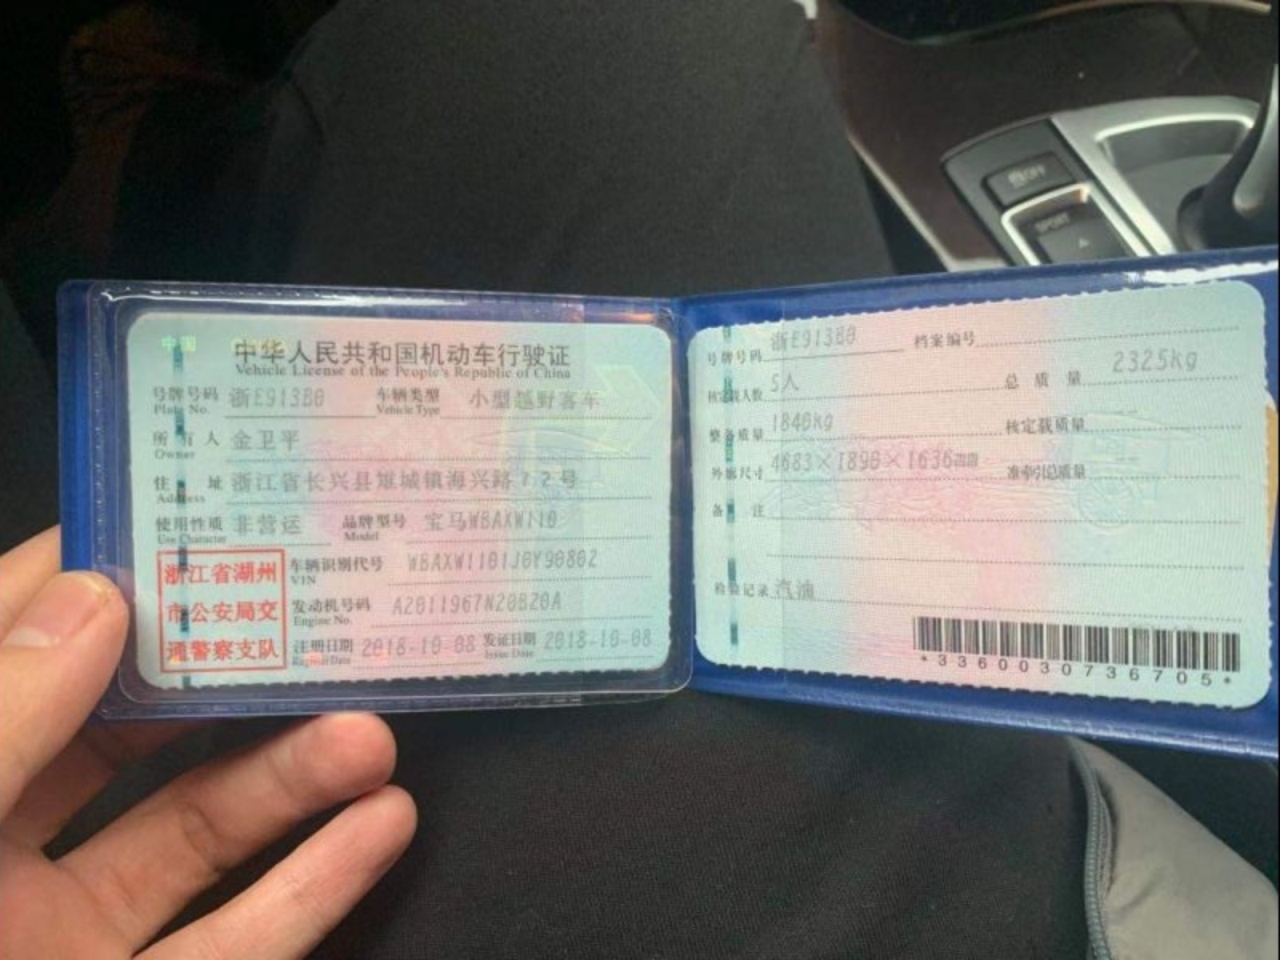 中华人民共和国机动车行驶证
Vehicle License of the People's Republic of China
号牌号码 浙E913B0 车辆类型 小型越野客车
Plate No. Vehicle Type
所有人 金卫平
Owner
住址 浙江省长兴县雉城镇海兴路72号
Address
使用性质 非营运 品牌型号 宝马WBAXW110
Use Character Model
浙江省湖州
市公安局交
通警察支队
车辆识别代号 WBAXW1101J0Y90802
VIN
发动机号码 A2011967N20B20A
Engine No.
注册日期 2018-10-08 发证日期 2018-10-08
Register Date Issue Date
号牌号码 浙E913B0 档案编号
核定载人数 5人 总质量 2325kg
整备质量 1840kg 核定载质量
外廓尺寸 4683×1898×1636mm 准牵引总质量
备注
检验记录 汽油
*3360030736705*
OFF
SPORT